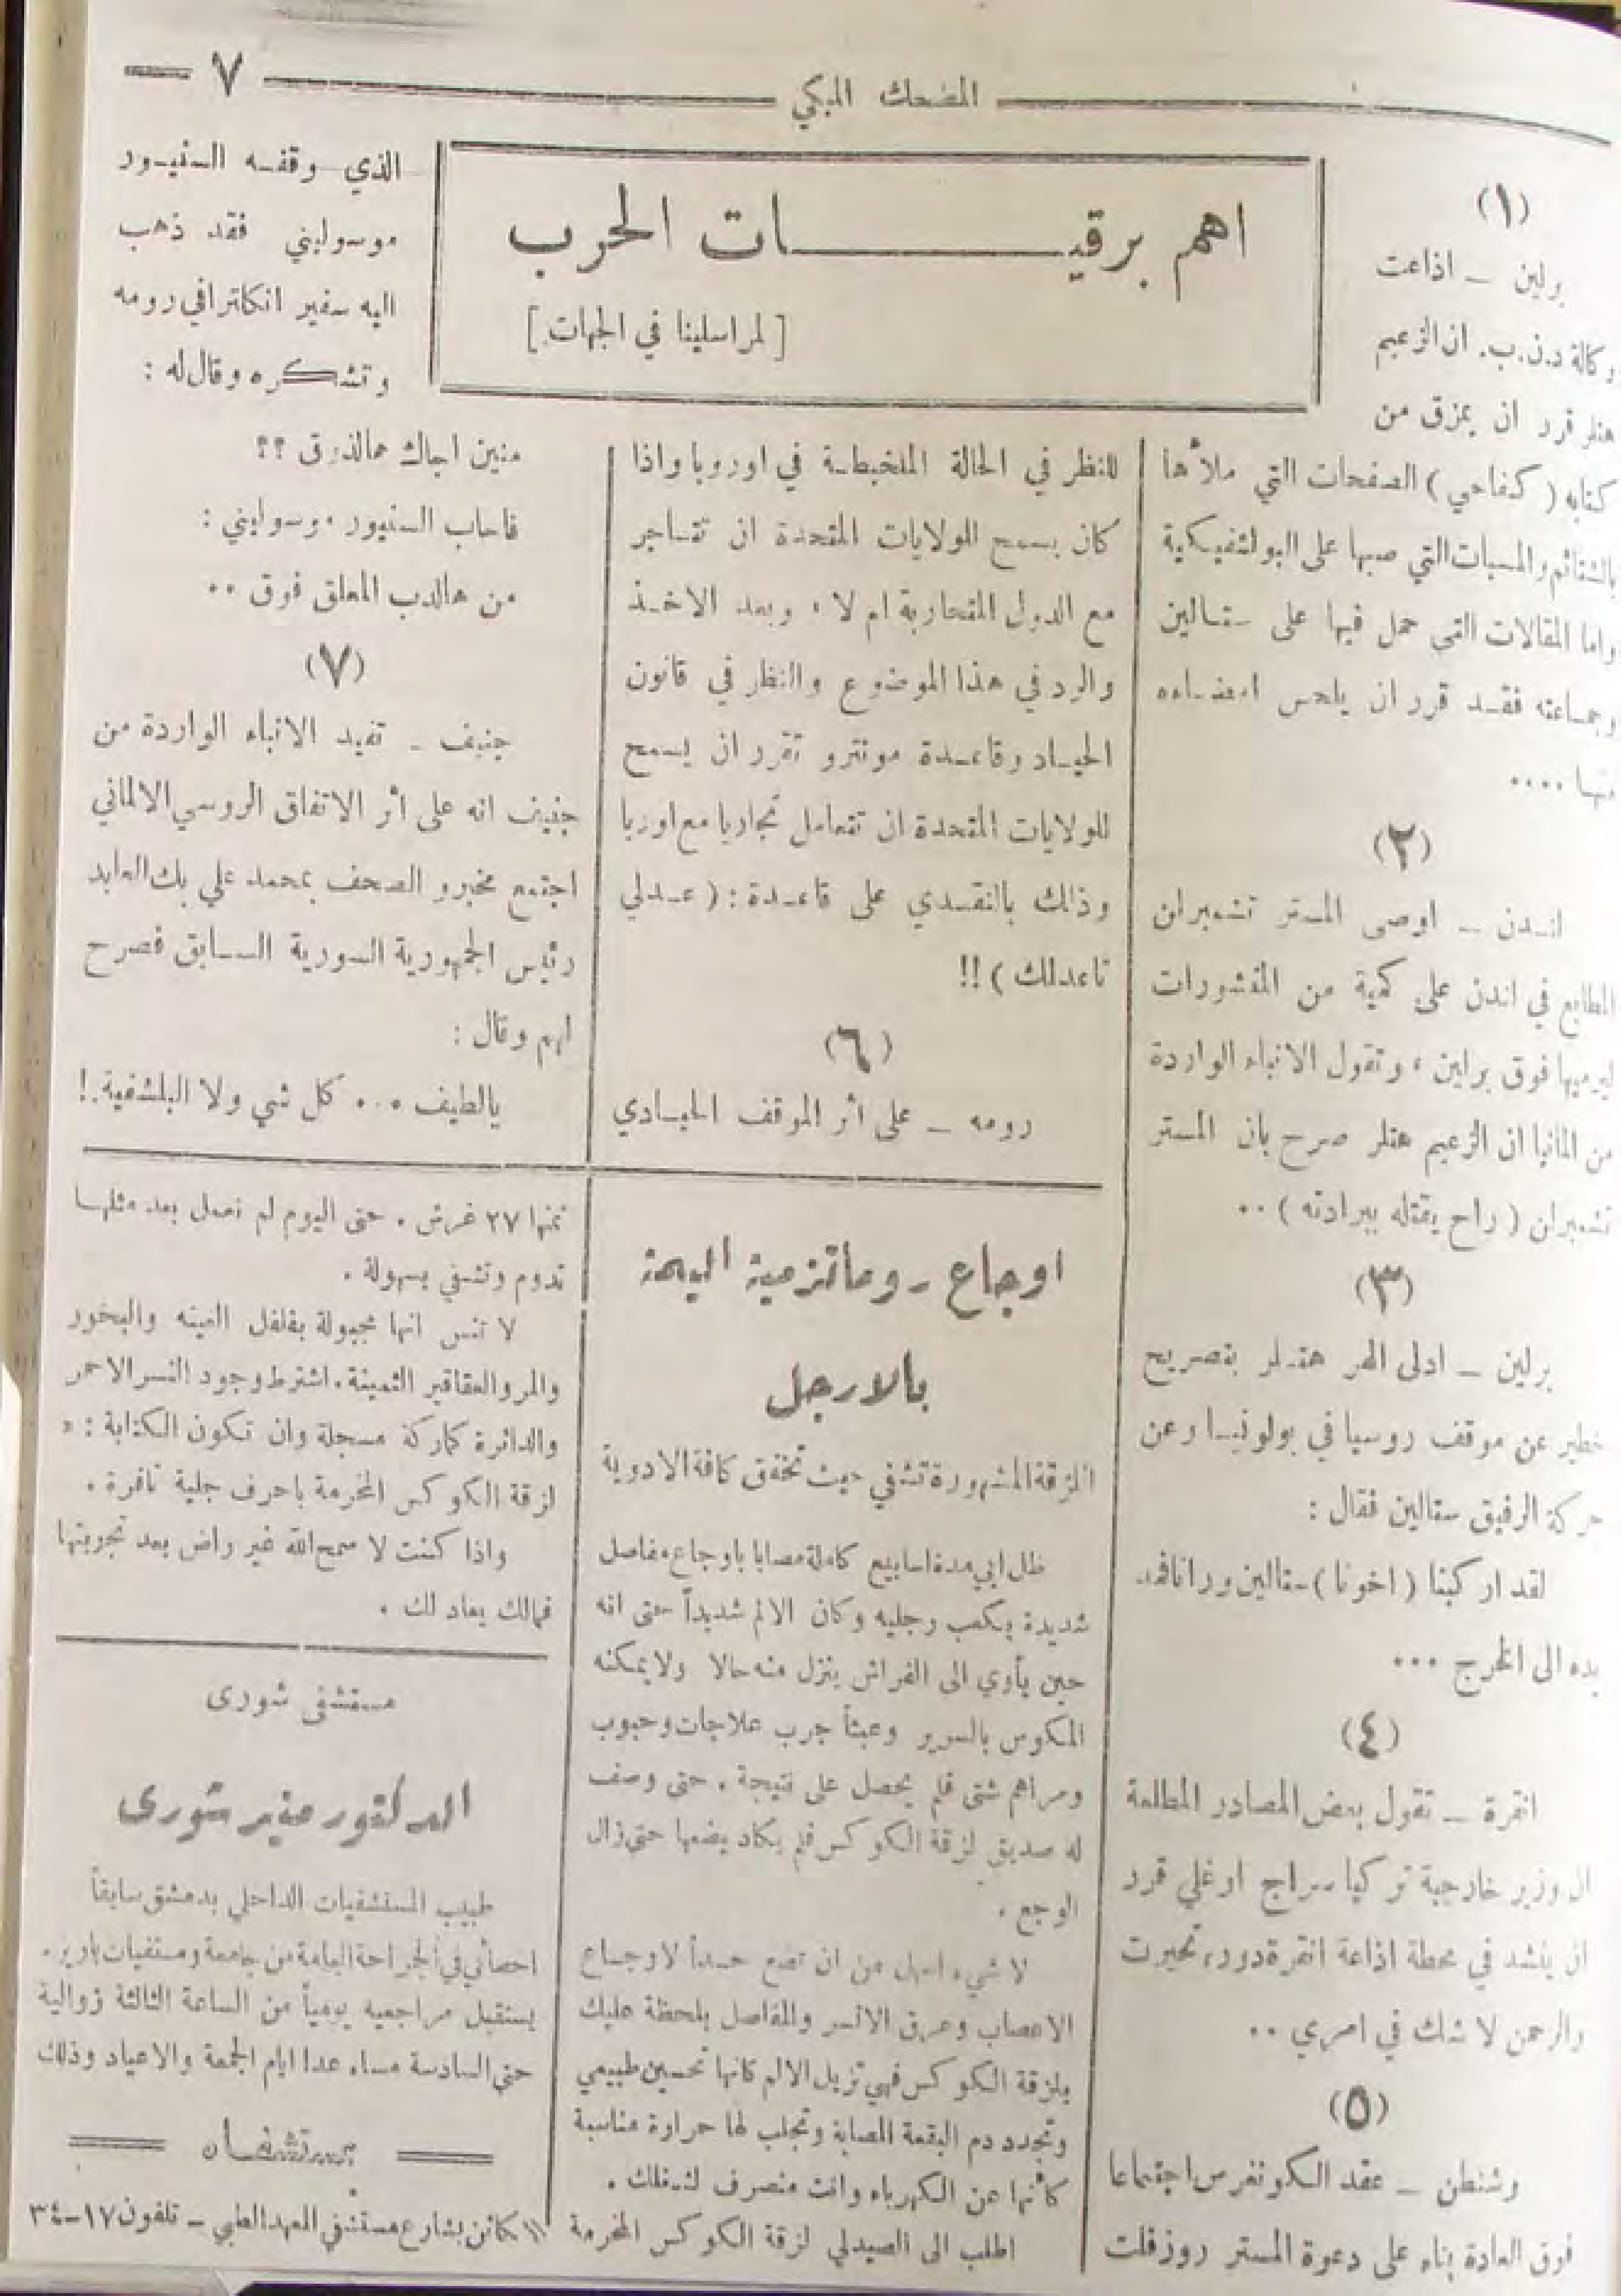 المضحك المبكي
— ٧ —
اهم برقيـــات الحرب
[ لمراسلينا في الجهات ]
(١)
برلين — اذاعت
وكالة د.ن.ب. ان الزعيم
هتلر قرر ان يمزق من
كتابه ( كفاحي ) الصفحات التي ملأها
بالشتائم والمسبات التي صبها على البولشفيكية
واما المقالات التي حمل فيها على ستالين
وجماعته فقد قرر ان يلحس امضاءه
منها ....
(٢)
لندن — اوصى المستر تشمبرلن
المطابع في لندن على كمية من المنشورات
ليرميها فوق برلين ، وتقول الانباء الواردة
من المانيا ان الزعيم هتلر صرح بان المستر
تشمبرلن ( راح يقتله ببرادته ) ..
(٣)
برلين — ادلى الهر هتلر بتصريح
خطير عن موقف روسيا في بولونيا وعن
حركة الرفيق ستالين فقال :
لقد اركبنا ( اخونا ) ستالين ورانا فمد
يده الى الخرج ...
(٤)
انقرة — تقول بعض المصادر المطلعة
ان وزير خارجية تركيا سراج اوغلي قرر
ان ينشد في محطة اذاعة انقرة دور ، تحيرت
والرحمن لا شك في امري ..
(٥)
وشنطن — عقد الكونغرس اجتماعا
فوق العادة بناء على دعوة المستر روزفلت
للنظر في الحالة المتخبطة في اوروبا واذا
كان يسمح للولايات المتحدة ان تتاجر
مع الدول المتحاربة ام لا ، وبعد الاخذ
والرد في هذا الموضوع والنظر في قانون
الحياد وقاعدة مونترو تقرر ان يسمح
للولايات المتحدة ان تتعامل تجاريا مع اوربا
وذلك بالنقدي على قاعدة : ( عدلي
تاعدلك ) !!
(٦)
رومه — على أثر الموقف الحيادي
الذي وقفه السنيور
موسوليني فقد ذهب
اليه سفير انكلترا في رومه
وتشكره وقال له :
منين اجاك هالذوق ؟؟
فاجاب السنيور موسوليني :
من هالدب المعلق فوق ..
(٧)
جنيف — تفيد الانباء الواردة من
جنيف انه على أثر الاتفاق الروسي الالماني
اجتمع مخبرو الصحف بمحمد علي بك العابد
رئيس الجمهورية السورية السابق فصرح
لهم وقال :
يالطيف ... كل شي ولا البلشفية !
اوجاع روماتزمية اليمة
بالارجل
اللزقة المشهورة تشفي حيث تخفق كافة الادوية
ظل ابي مدة اسابيع كاملة مصابا باوجاع مفاصل
شديدة بكعب رجليه وكان الالم شديداً حتى انه
حين يأوي الى الفراش ينزل منه حالا ولا يمكنه
المكوس بالسرير وعبثاً جرب علاجات وحبوب
ومراهم شتى فلم يحصل على نتيجة . حتى وصف
له صديق لزقة الكوكس فلم يكاد يضعها حتى زال
الوجع .
لا شيء اسهل من ان تضع حداً لاوجاع
الاعصاب وعرق الانسر والمفاصل بلحظة عليك
بلزقة الكوكس فهي تزيل الالم كانها تحسين طبيعي
وتجدد دم البقعة المصابة وتجلب لها حرارة مناسبة
كأنها عن الكهرباء وانت منصرف لشغلك .
اطلب الى الصيدلي لزقة الكوكس المخرمة
ثمنها ٢٧ غرش . حتى اليوم لم نعمل بعد مثلها
تدوم وتشفي بسهولة .
لا تنس انها مجبولة بفلفل الغينه والبخور
والمر والعقاقير الثمينة . اشترط وجود النسر الاحمر
والدائرة كماركة مسجلة وان تكون الكتابة : «
لزقة الكوكس المخرمة باحرف جلية نافرة .
واذا كنت لا سمح الله غير راض بعد تجربتها
فمالك يعاد لك .
مستشفى شورى
الدكتور منير شورى
طبيب المستشفيات الداخلي بدمشق سابقاً
اخصائي في الجراحة العامة من جامعة ومستشفيات باريز .
يستقبل مراجعيه يومياً من الساعة الثالثة زوالية
حتى السادسة مساء عدا ايام الجمعة والاعياد وذلك
بمستشفاه
الكائن بشارع مستشفى المعهد الطبي — تلفون ١٧-٣٤